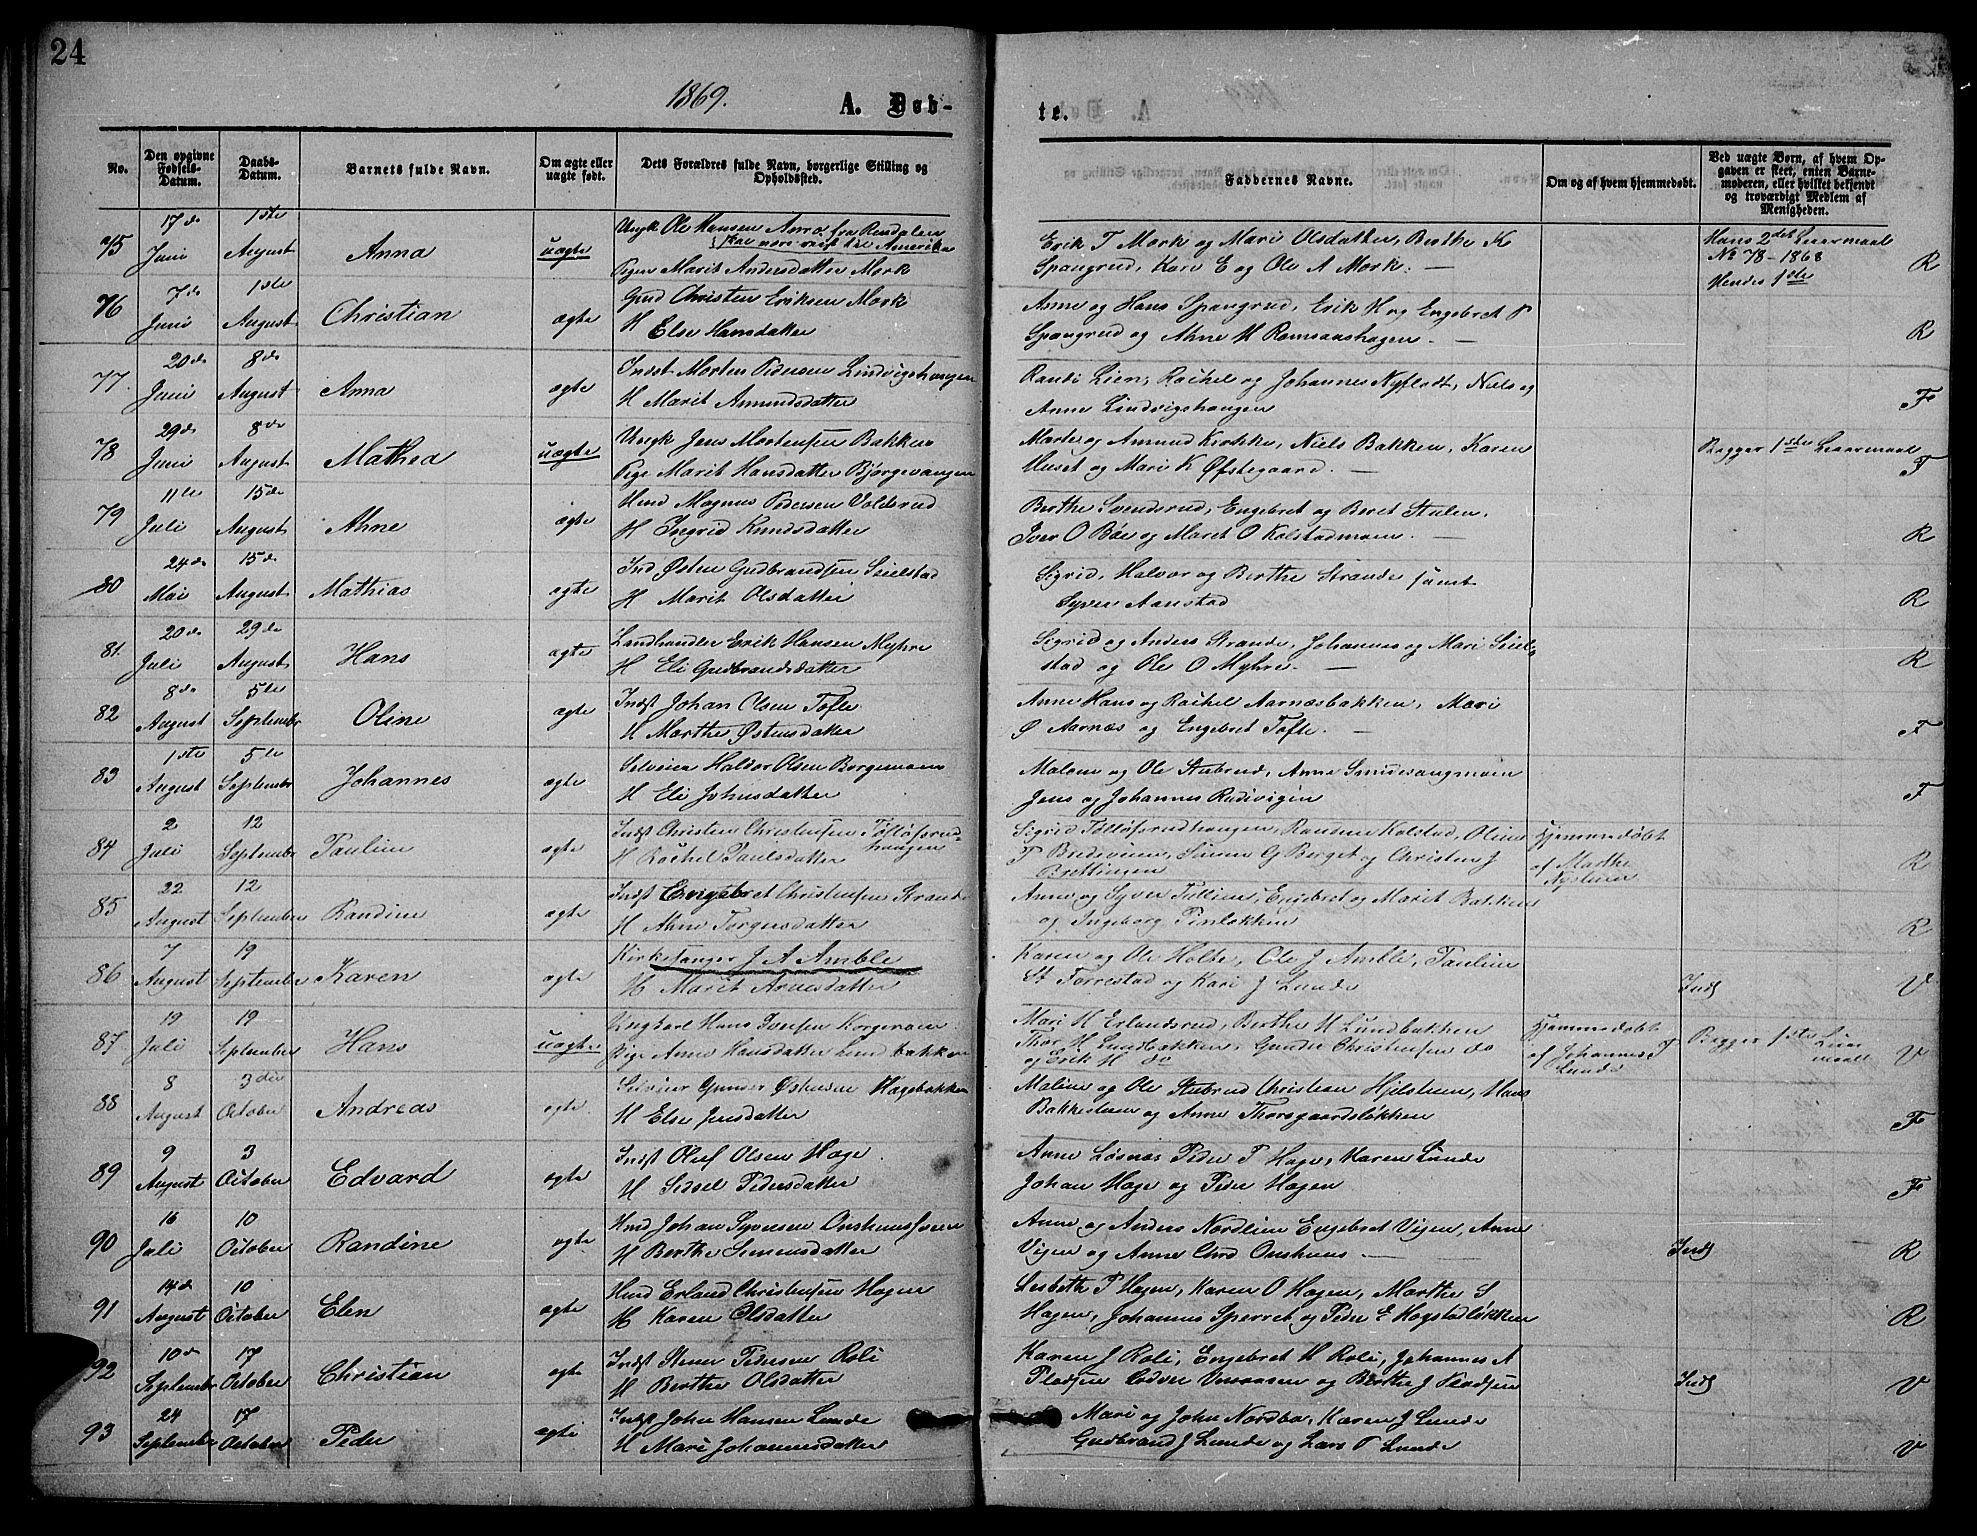 24
1869.
A. Døb-
te.
No.
Den opgivne Fødsels-Datum.
Daabs-Datum.
Barnets fulde Navn.
Om ægte eller uægte født.
Dets Forældres fulde Navn, borgerlige Stilling og Opholdssted.
Faddernes Navne.
Om og af hvem hjemmedøbt.
Ved uægte Børn, af hvem Opgaven er skeet, enten Barnemoderen, eller hvilket bekjendt og troværdigt Medlem af Menigheden.
75 17de Juni 1ste August Anna uægte
Ungk Ole Hansen fra Rendalen
skal være reist til Amerika
Pige Marit Andersdatter Mork
Erik T Mork og Mari Olsdatter, Berthe K
Spangrud, Kari E og Ole A Mork. —
Hans 2det Leiermaal
No 78 - 1868
Hendes 1ste
R
76 7de Juni 1ste August Christian ægte
Gmd Christen Eriksen Mork
H Else Hansdatter
Anne og Hans Spangrud, Erik H og Engebret P
Spangrud og Ahne M Ramsaashagen. —
R
77. 20de Juni 8de August Anna ægte
Indst Morten Pedersen Lindvigshaugen
H Marit Amundsdatter
Randi Lien, Rachel og Johannes Nyflødt, Niels og
Anne Lindvigshaugen
F
78 29de Juni 8de August Mathea uægte
Ungk Jens Mortensen Bakken
Pige Marit Hansdatter Bjørgevangen
Marte og Amund Kirkke, Niels Bakken, Karen
Huset og Mari K Øfstegaard. —
Begges 1ste Leiermaal
F
79 11te Juli 15de August Ahne ægte
Hmd Magnus Pedersen Volderud
H Ingrid Knudsdatter
Berthe Svendsrud, Engebret og Beret Stulen,
Iver O Bøe og Maret O Kolstadmoen. —
R
80 24de Mai 15de August Mathias ægte
Ind Østen Gudbrandsen Seielstad
H Marit Olsdatter
Sigrid, Halvor og Berthe Strande samt
Syver Aanstad
R
81. 20de Juli 29de August Hans ægte
Landhandler Erik Hansen Myhre
H Eli Gudbrandsdatter
Sigrid og Anders Strande, Johannes og Mari Seiel-
stad og Ole O Myhre. —
R
82 8de August 5te September Oline ægte
Indst Johan Olsen Tofte
H Marthe Østensdatter
Anne Hans og Rachel Aarnæsbakken, Mari
Ø Aarnæs og Engebret Tofte. —
F
83 1ste August 5te September Johannes ægte
Selveier Haldor Olsen Borgemoen
H Eli Johnsdatter
Malene og Ole Stubrud, Anne Smidesvangmoen
Jens og Johannes Rudivigen
F
84 2 Juli 12 September Pauline ægte
Indst Christen Christensen Tofløfsrud-
haugen
H Rachel Paulsdatter
Sigrid Tofløfsrudhaugen, Rasmus Kolstad, Oline
T Bredevien, Simen G Berget og Christen J
Brettingen
Hjemmedøbt
af Marthe
Nysluen
R
85 22 August 12 September Randine ægte
Indst Engebret Christensen Strande
H Ahne Torgersdatter
Anne og Syver Tollien, Engebret og Marit Bakken
og Ingeborg Finløkken
R
86 7 August 19 September Karen ægte
Kirkesanger J A Amble
H Marit Arnesdatter
Karen og Ole Holte, Ole J Amble, Pauline
St Forrestad og Kari J Lunde
Inds
V
87 19 Juli 19 September Hans uægte
Ungkarl Hans Iversen Korgeroen
Pige Anne Hansdatter Lundbakken
Mari H Erlandsrud, Berthe H Lundbakken
Thor H Lundbakken, Gunder Christensen do
og Erik H do
Hjemmedøbt
af Johannes T
Lunde
Begges 1ste Leier
maal
V
88 8 August 3die October Andreas ægte
Selveier Gunder Østensen Hagebakken
H Else Jensdatter
Malene og Ole Stubrud Christian Hjelsteuen, Hans
Bakkestuen og Anne Thorsgaardsløkken
F
89 9 August 3 October Edvard ægte
Indst Oluf Olsen Hage
H Sidsel Pedersdatter
Anne Løsnæs Peder T Hage, Karen Lunde
Johan Hage og Peder Hagen
F
90 16 Juli 10 October Randine ægte
Hmd Johan Syversen Onshuusseen
H Berthe Simensdatter
Anne og Anders Nordlien Engebret Vigen, Anne
Vigen og Anne Chrd Onshuus —
Inds
R
91 14de August 10 October Elen ægte
Hmd Erland Christensen Hagen
H Karen Olsdatter
Lisbeth P Hagen, Karen O Hagen, Marthe S
Hagen, Johannes Sperret og Peder E Hogstadløkken
R
92 10de September 17 October Christian ægte
Indst Stener Pedersen Roli
H Berthe Olsdatter
Karen J Roli, Engebret H Roli, Johannes A
Pladsen og Berthe J Nerdseen
Inds
V
93 24 September 17 October Peder ægte
Indst John Hansen Lunde
H Mari Johannesdatter
Mari og John Nordbo, Karen J Lunde
Gudbrand J Lunde og Lars T Lunde
V